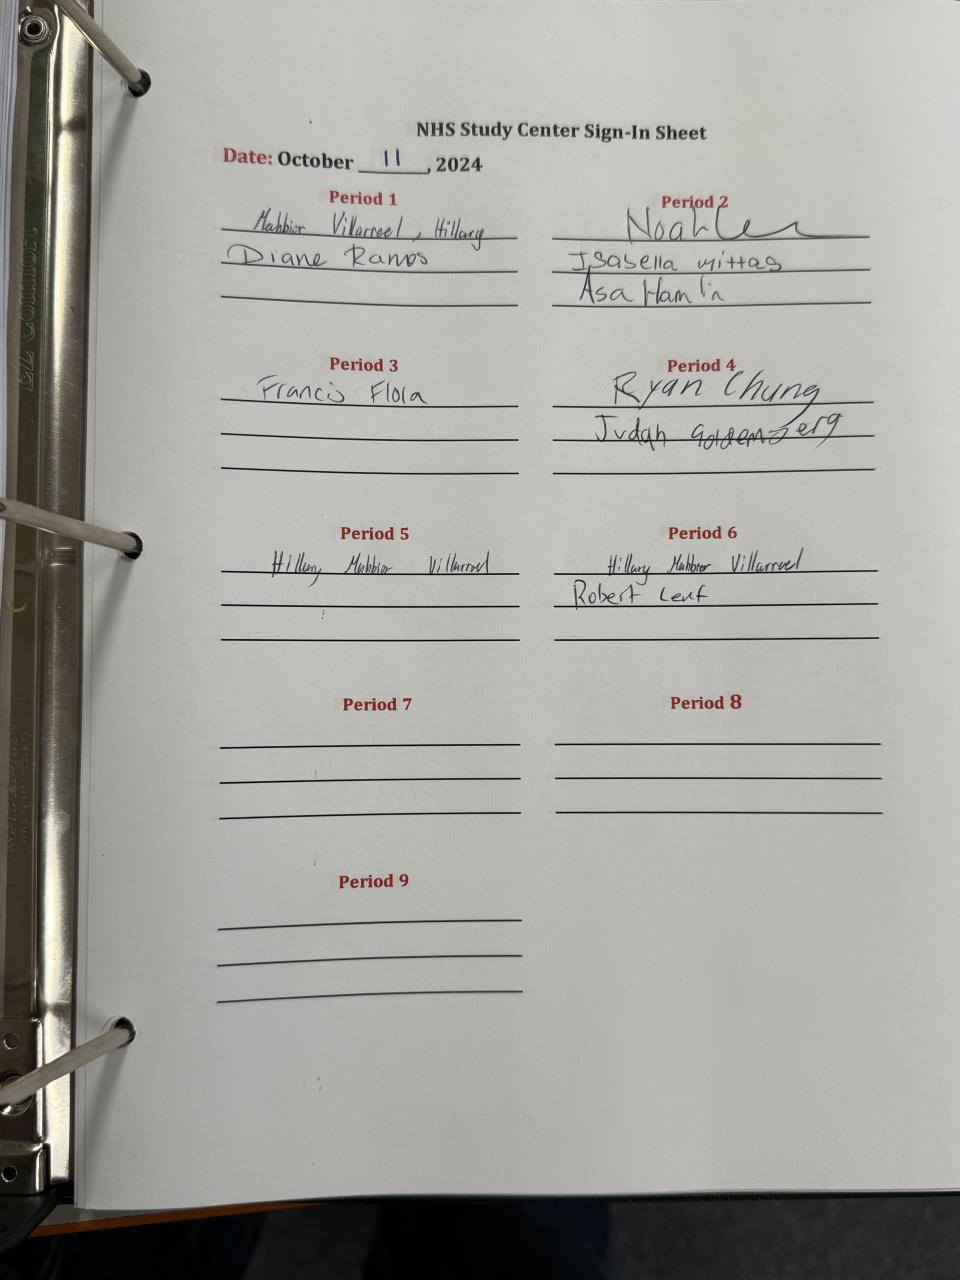 NHS Study Center Sign-In Sheet
Date: October 11, 2024
Period 1
Mahbior Villarreel, Hillary
Diane Ramos
Period 2
Noah
Isabella Mittas
Asa Hamlin
Period 3
Francis Flora
Period 4
Ryan Chung
Judah Goldenberg
Period 5
Hillary Mahbior Villarroel
Period 6
Hillary Mahbior Villarroel
Robert Leuf
Period 7
Period 8
Period 9